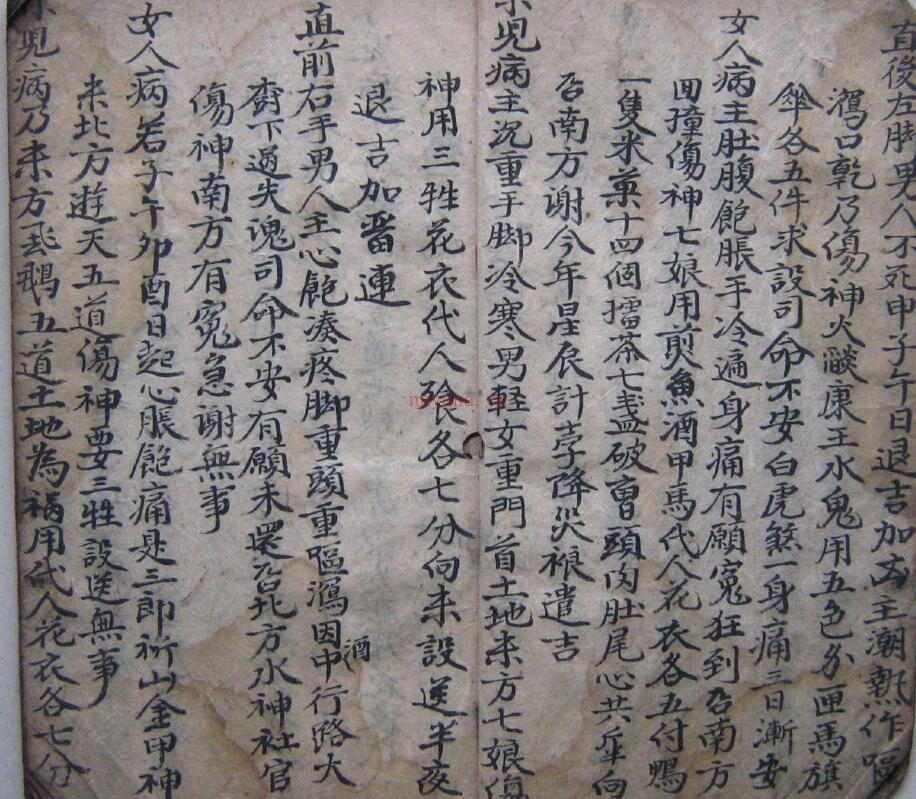 直後左脚男人不死申子午日退吉加 主潮熱作嘔
瀉口乾乃傷神火 康王水鬼用五色 匣馬旗
傘各五件求設司命不安白虎煞一身痛三日漸安
女人病主肚腹飽脹手冷遍身痛有願寃狂到 南方
 撞傷神七娘用煎魚酒甲馬代人花衣各五付鴨
一隻米菓十四個擂茶七盞破 頭肉肚尾心共 向
 南方謝今年星辰計孛降災禳遣吉
 児病主沉重手脚冷寒男軽女重門首土地東方七娘傷
神用三牲花衣代人 各七分向東設送半夜
退吉加 連
直前右手男人主心飽凑疼脚重頭重嘔瀉因中行路大
樹下過失魂司命不安有願未還 北方水神社官
傷神南方有寃急謝無事
酒
女人病若子午卯酉日起心脹飽痛是三郎祈山金甲神
東北方遊天五道傷神要三牲設送無事
 児病乃東方飛鵝五道土地為禍用代人花衣各七分